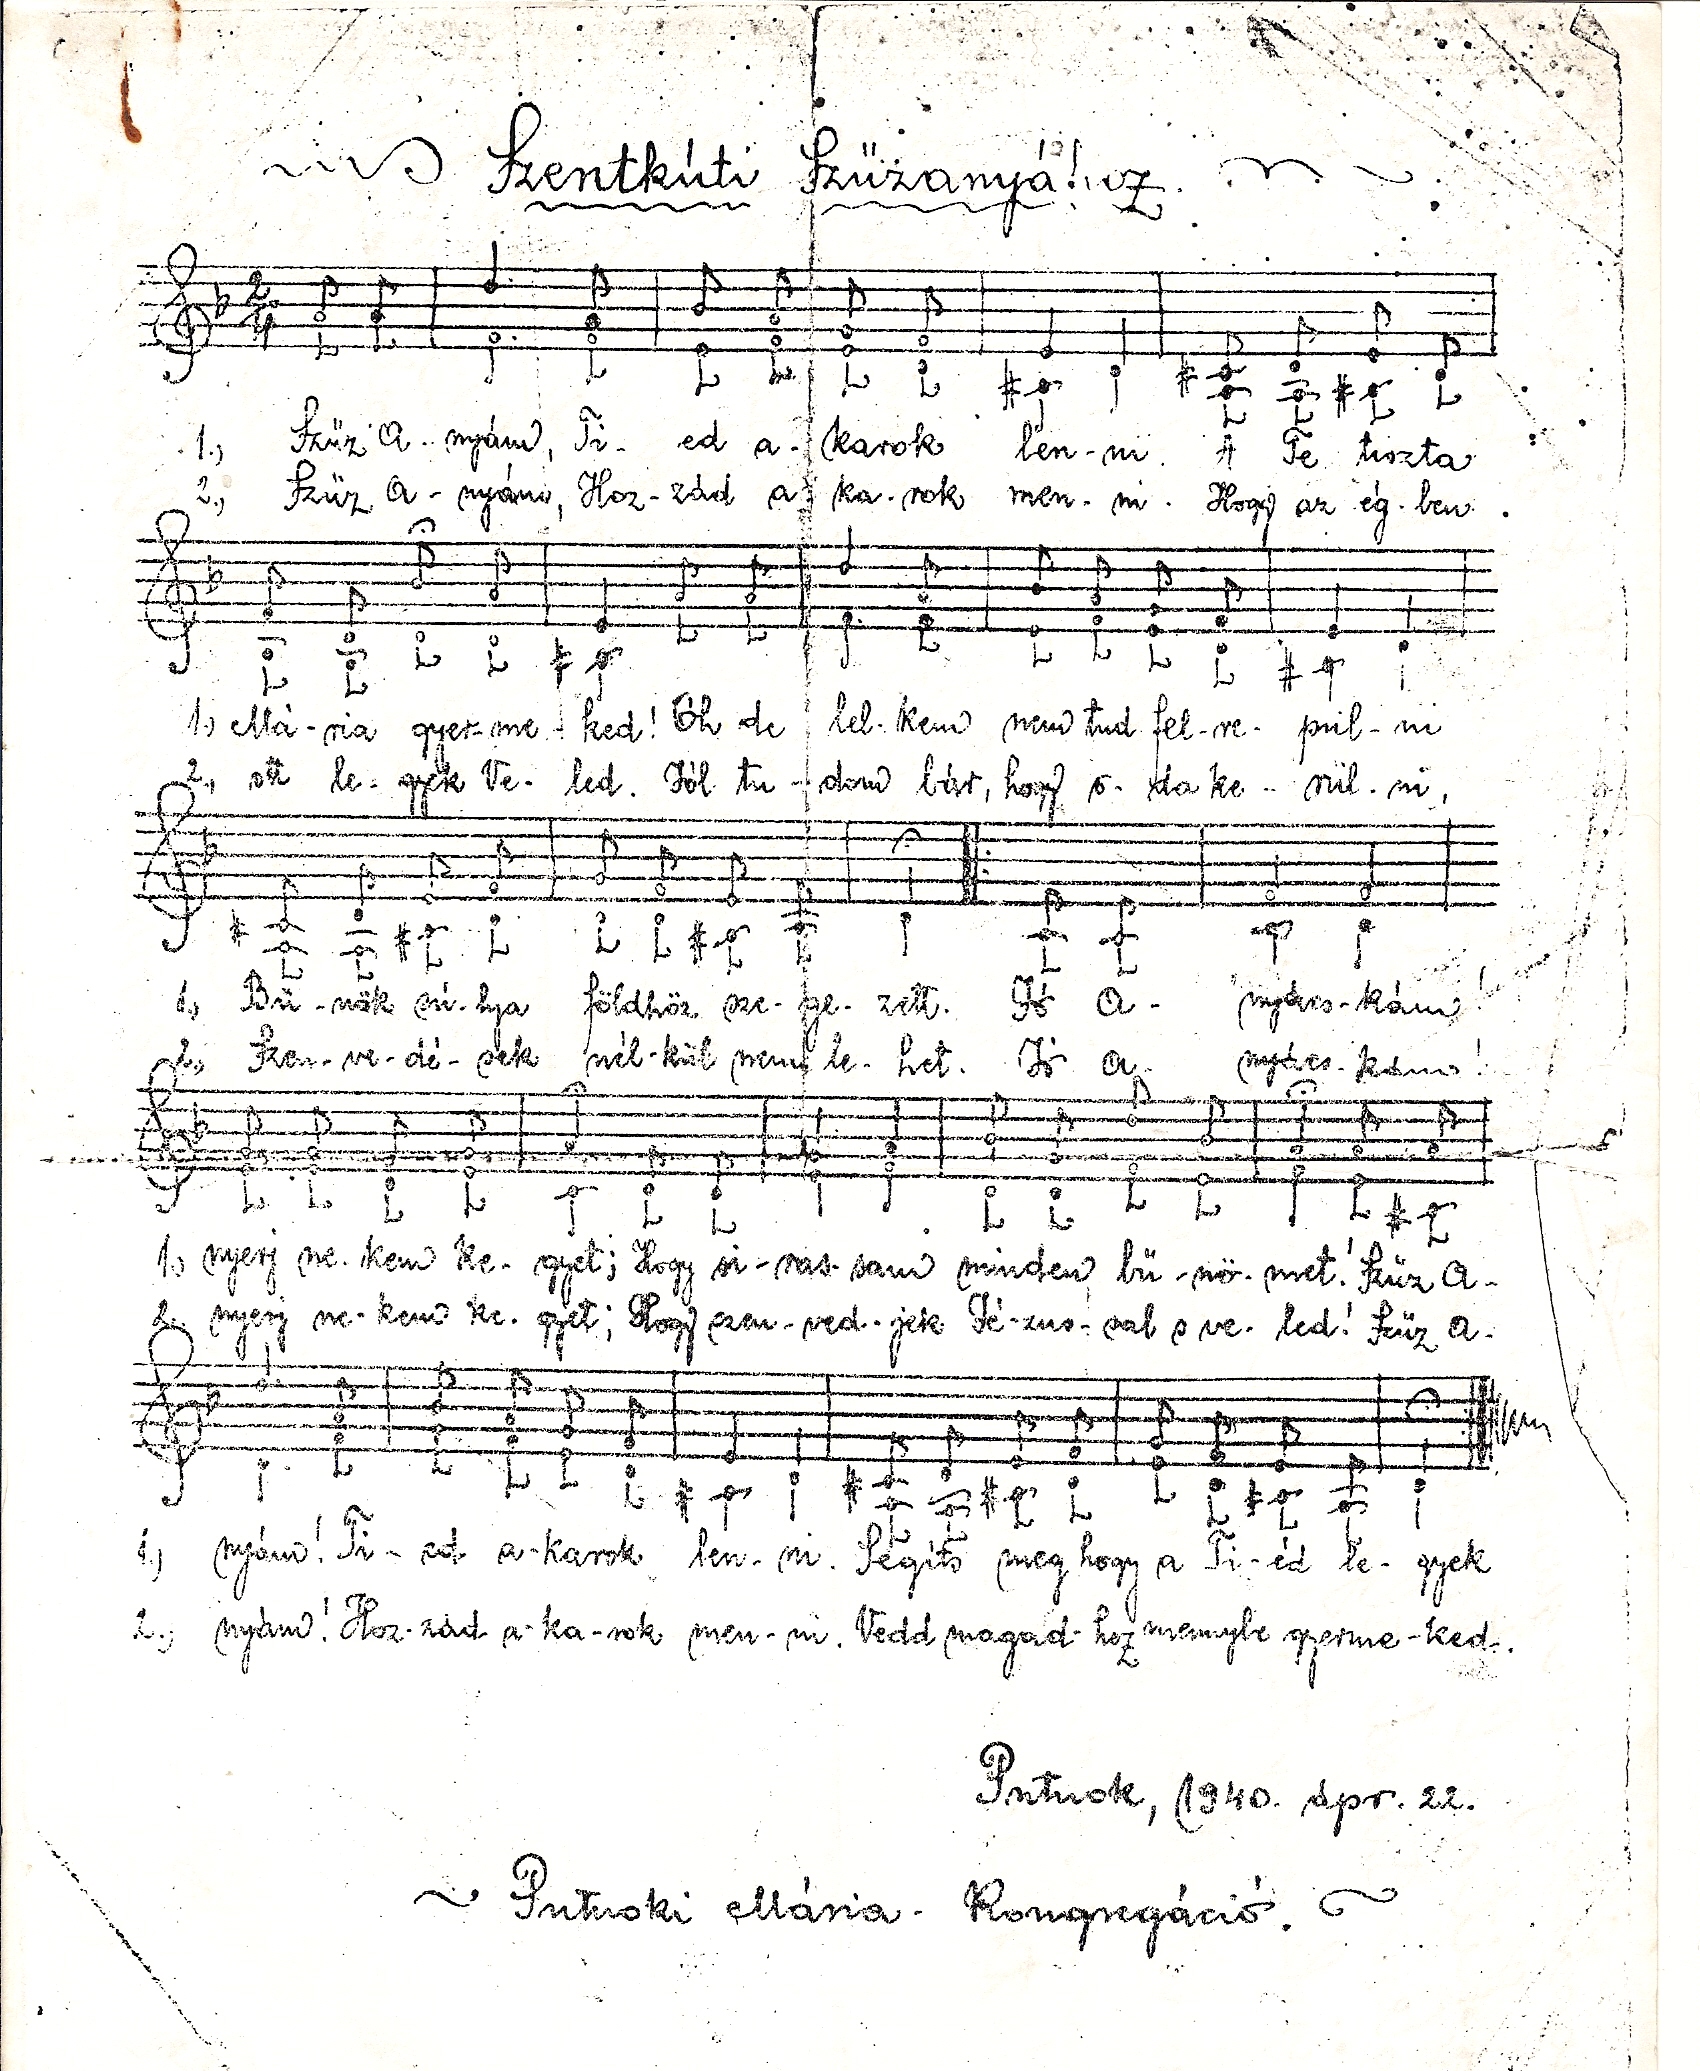 Szentkúti Szűzanyához.
2/4
1., Szűz A - nyám, Ti - ed a - karok len - ni. A Te tiszta
2., Szűz A - nyám, Hoz - zád a - ka - rok men - ni. Hogy az ég - ben
1., Má - ria gyer - me - ked! Óh de lel - kem nem tud fel - re - pül - ni
2., ott le - gyek Ve - led. Jól tu - dom bár, hogy o - da ke - rül - ni,
1., Bű - nök sú - lya földhöz sze - ge - zett. Jó A - nyács - kám!
2., Szen - ve - dé - sek nél - kül nem le - het. Jó A - nyács - kám!
1., nyerj ne - kem ke - gyet; Hogy si - ras - sam minden bű - nö - met! Szűz A -
2., nyerj ne - kem ke - gyet; Hogy szen - ved - jek Jé - zus - sal s ve - led! Szűz A -
1., nyám! Ti - ed a - karok len - ni. Segíts meg hogy a Ti - éd le - gyek
2., nyám! Hoz - zád a - ka - rok men - ni. Vedd magad - hoz mennybe gyerme - ked.
Putnok, 1940. ápr. 22.
Putnoki Mária - Kongregáció.